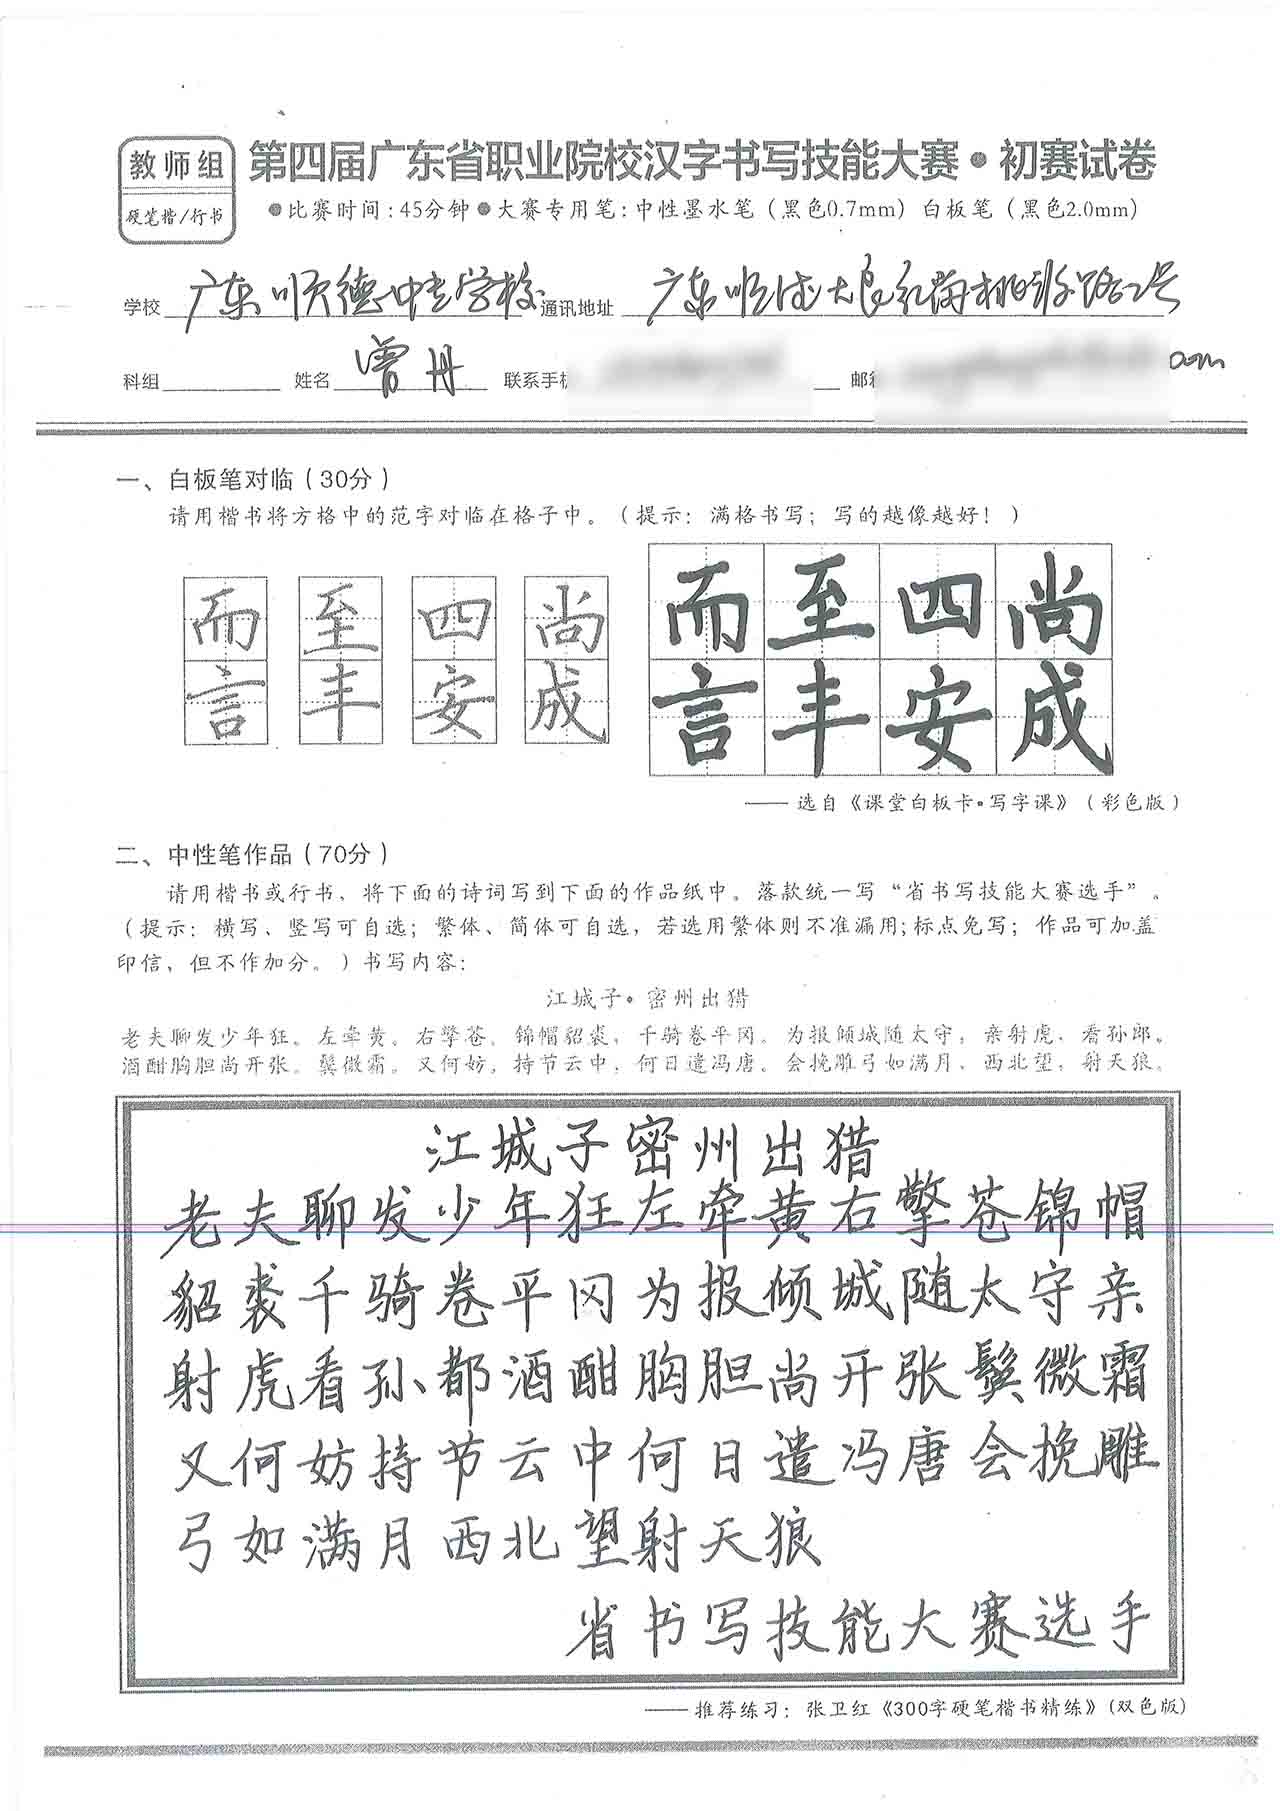 教师组
硬笔楷/行书
第四届广东省职业院校汉字书写技能大赛·初赛试卷
●比赛时间:45分钟●大赛专用笔:中性墨水笔（黑色0.7mm）白板笔（黑色2.0mm）
学校 广东顺德中专学校 通讯地址 广东顺德大良红岗桃源路2号
科组 姓名 曾丹 联系手机 邮箱 com
一、白板笔对临（30分）
请用楷书将方格中的范字对临在格子中。（提示：满格书写；写的越像越好！）
而 至 四 尚 而 至 四 尚
言 丰 安 成 言 丰 安 成
—— 选自《课堂白板卡·写字课》（彩色版）
二、中性笔作品（70分）
请用楷书或行书、将下面的诗词写到下面的作品纸中。落款统一写“省书写技能大赛选手”。
（提示：横写、竖写可自选；繁体、简体可自选，若选用繁体则不准漏用;标点免写；作品可加盖
印信，但不作加分。）书写内容：
江城子·密州出猎
老夫聊发少年狂。左牵黄。右擎苍。锦帽貂裘，千骑卷平冈。为报倾城随太守，亲射虎，看孙郎。
酒酣胸胆尚开张。鬓微霜。又何妨。持节云中，何日遣冯唐。会挽雕弓如满月，西北望，射天狼。
江城子密州出猎
老夫聊发少年狂左牵黄右擎苍锦帽
貂裘千骑卷平冈为报倾城随太守亲
射虎看孙都酒酣胸胆尚开张鬓微霜
又何妨持节云中何日遣冯唐会挽雕
弓如满月西北望射天狼
省书写技能大赛选手
—— 推荐练习：张卫红《300字硬笔楷书精练》(双色版)